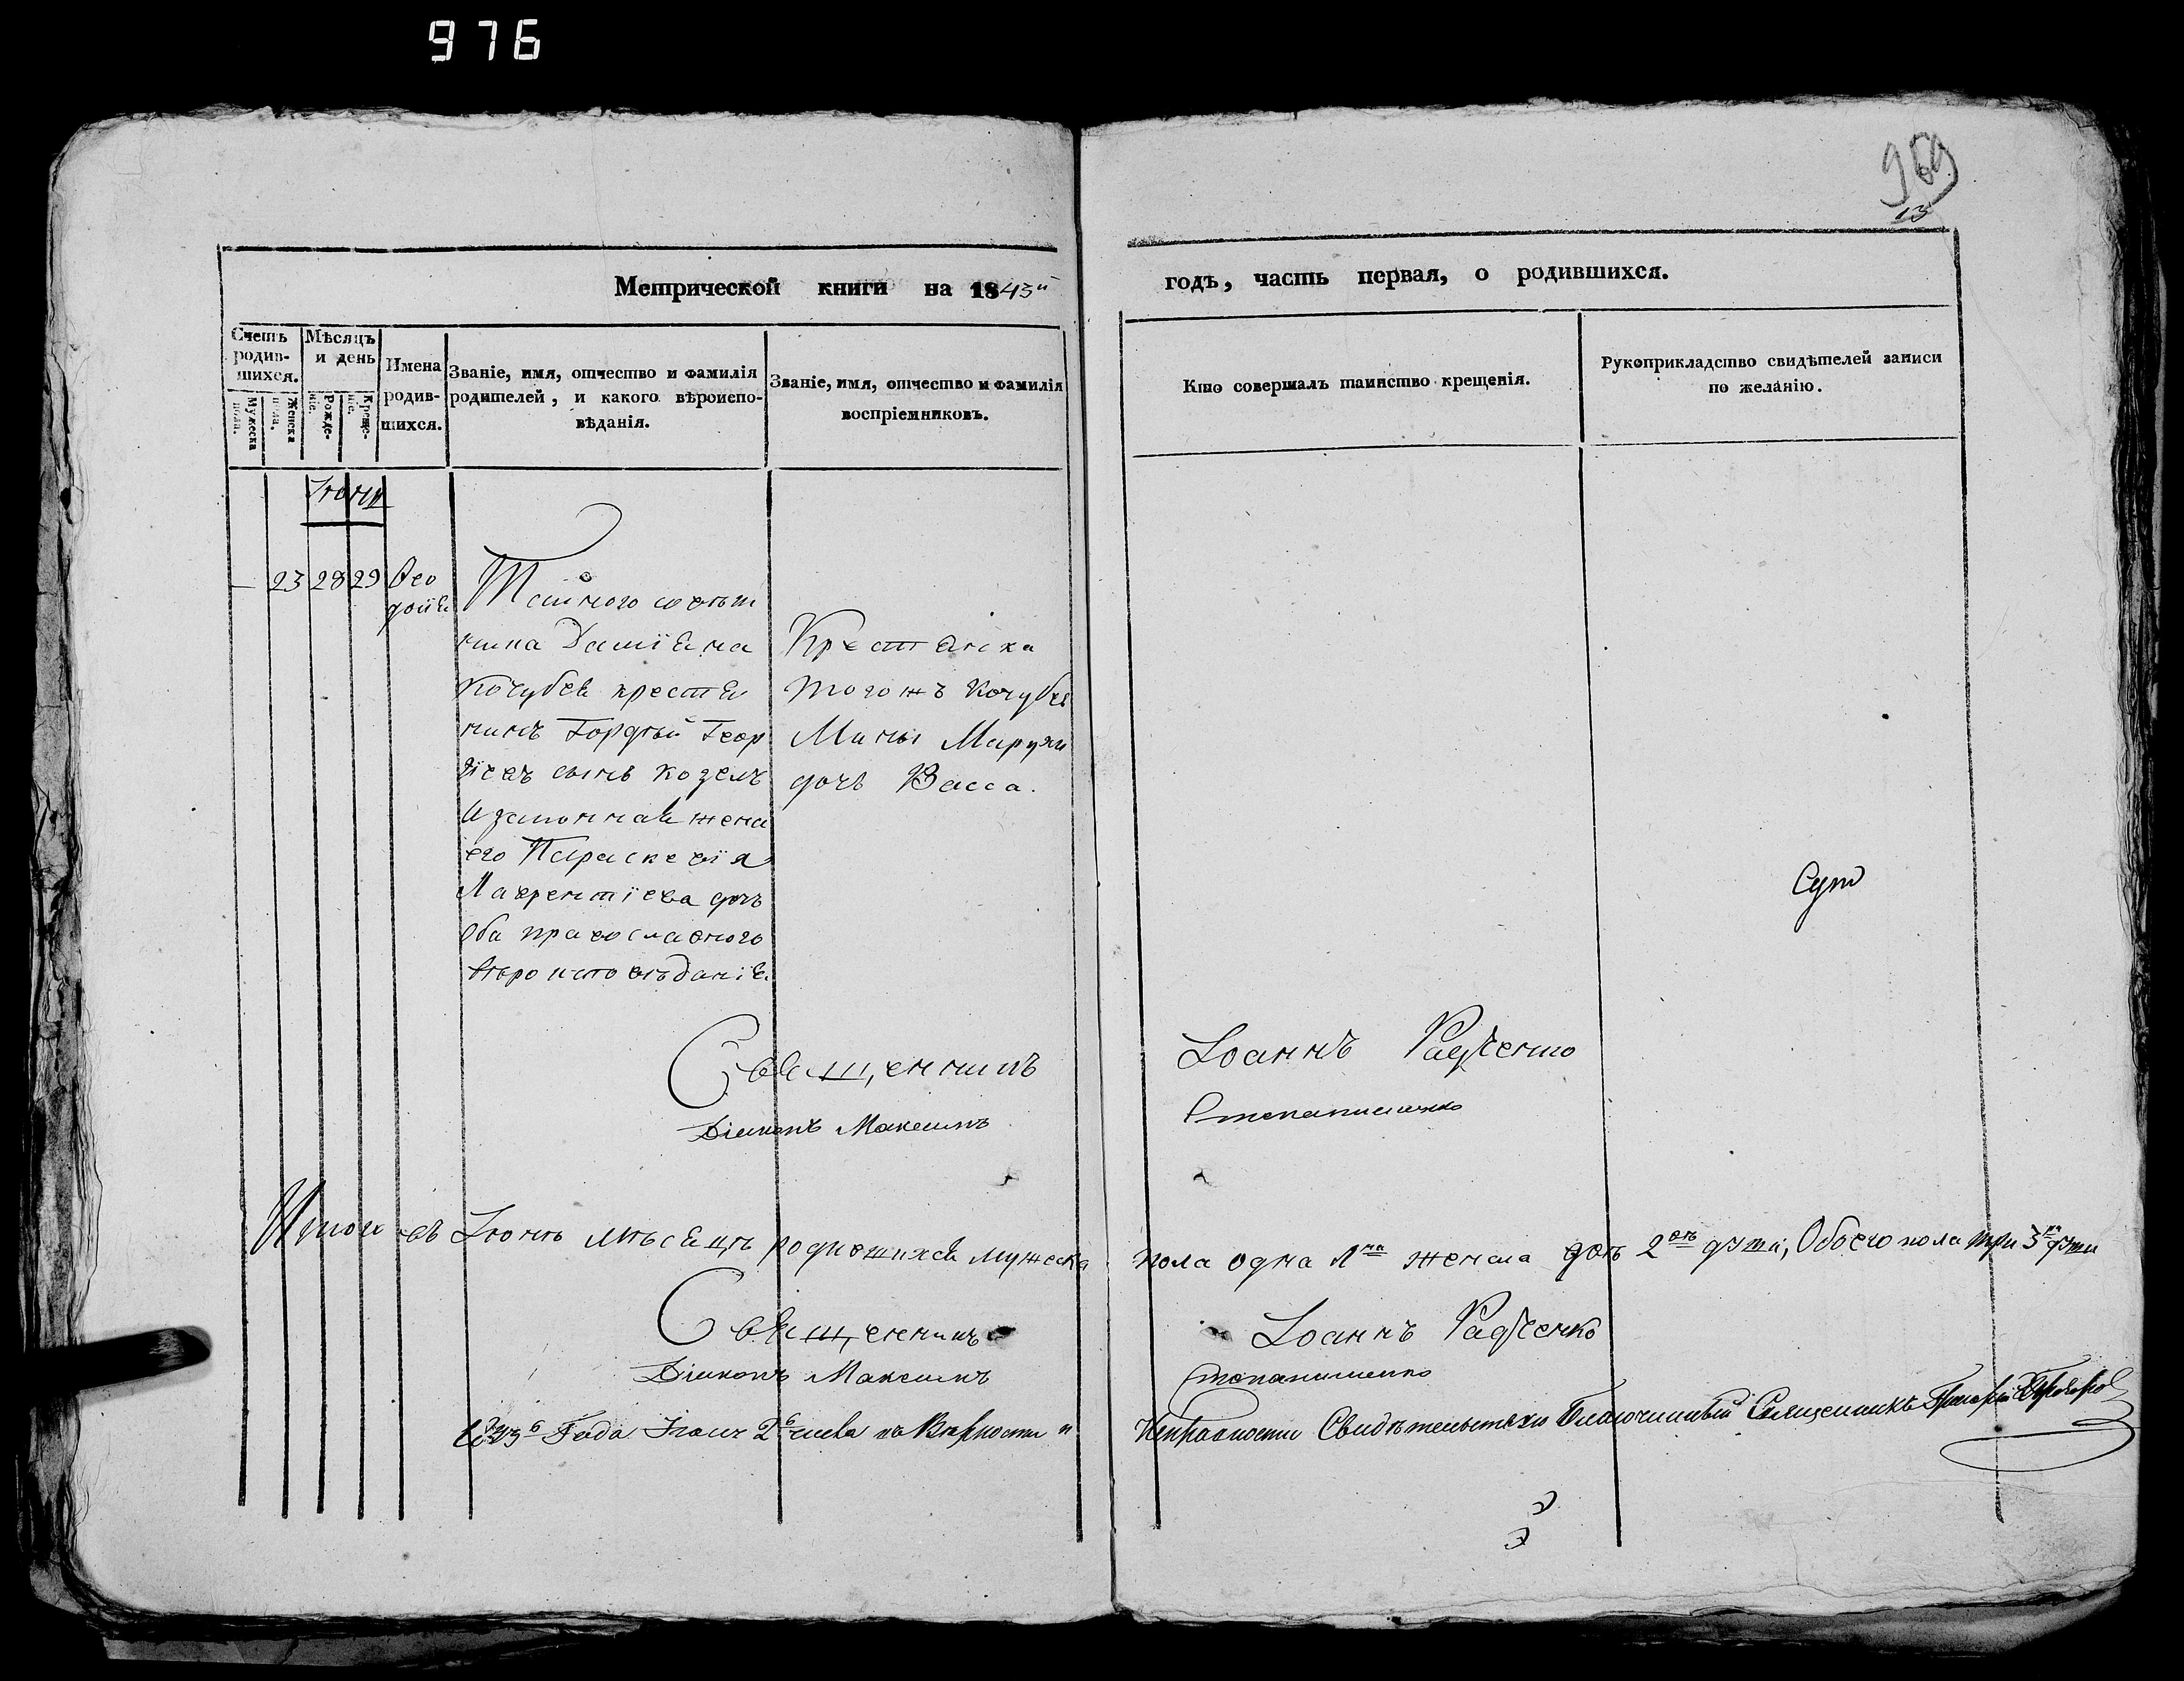 976
969
13
Метрической книги на 1843й годъ, часть первая, о родившихся.
Счетъ родив-шихся.
Мужеска пола.
Женска пола.
Мѣсяцъ и день
Рожде-ніе.
Креще-ніе.
Имена родив-шихся.
Званіе, имя, отчество и фамилія родителей, и какого вѣроиспо-вѣданія.
Званіе, имя, отчество и фамилія воспріемниковъ.
Кто совершалъ таинство крещенія.
Рукоприкладство свидѣтелей записи по желанію.
Іюнь
— 23 28 29
Тайного совѣт
ника Даміяна
Кочубея крестя
нинъ Гордѣй Геор
гіевъ сынъ Козелъ
и законная жена
его Параскевія
Лаврентіева дочь
оба православного
вѣроисповѣданія.
Крестянка
тогожъ Кочубея
Мины
дочь Васса.
Священникъ Іоаннъ Радченко
Діяконъ Максимъ
Итого въ Іюнѣ мѣсяцѣ родившихся мужеска пола одна 1на женска двѣ 2вѣ Обоего пола три 3ри
Священникъ Іоаннъ Радченко
Діяконъ Максимъ
Года 2 числа въ Вѣрности и
Исправности Свидѣтельствую Благочинный Священникъ